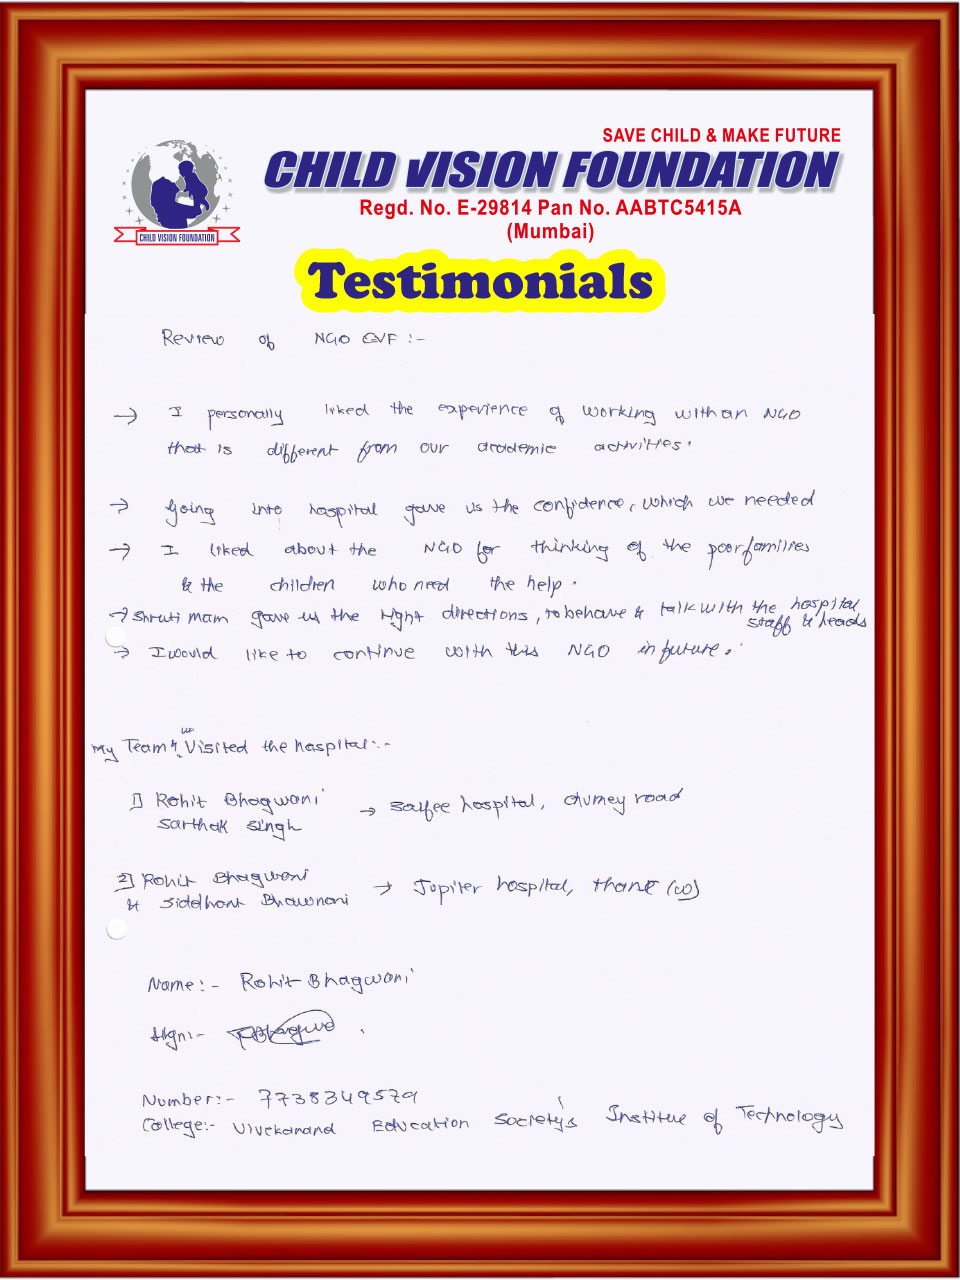 SAVE CHILD & MAKE FUTURE
CHILD VISION FOUNDATION
Regd. No. E-29814 Pan No. AABTC5415A
(Mumbai)
CHILD VISION FOUNDATION
Testimonials
Review of NGO CVF :-
→ I personally liked the experience of working with an NGO
that is different from our academic activities.
→ Going into hospital gave us the confidence, which we needed
→ I liked about the NGO for thinking of the poor families
& the children who need the help.
→ Shruti mam gave us the right directions, to behave & talk with the hospital
staff & heads
→ I would like to continue with this NGO in future.
My Team & we Visited the hospital:-
1) Rohit Bhagwani
Sarthak Singh → Saifee hospital, churney road
2) Rohit Bhagwani
& Siddhant Bhawnani → Jupiter hospital, thane (w)
Name:- Rohit Bhagwani
Sign:-
Number:- 7738349579
College:- Vivekanand Education Society's Institue of Technology